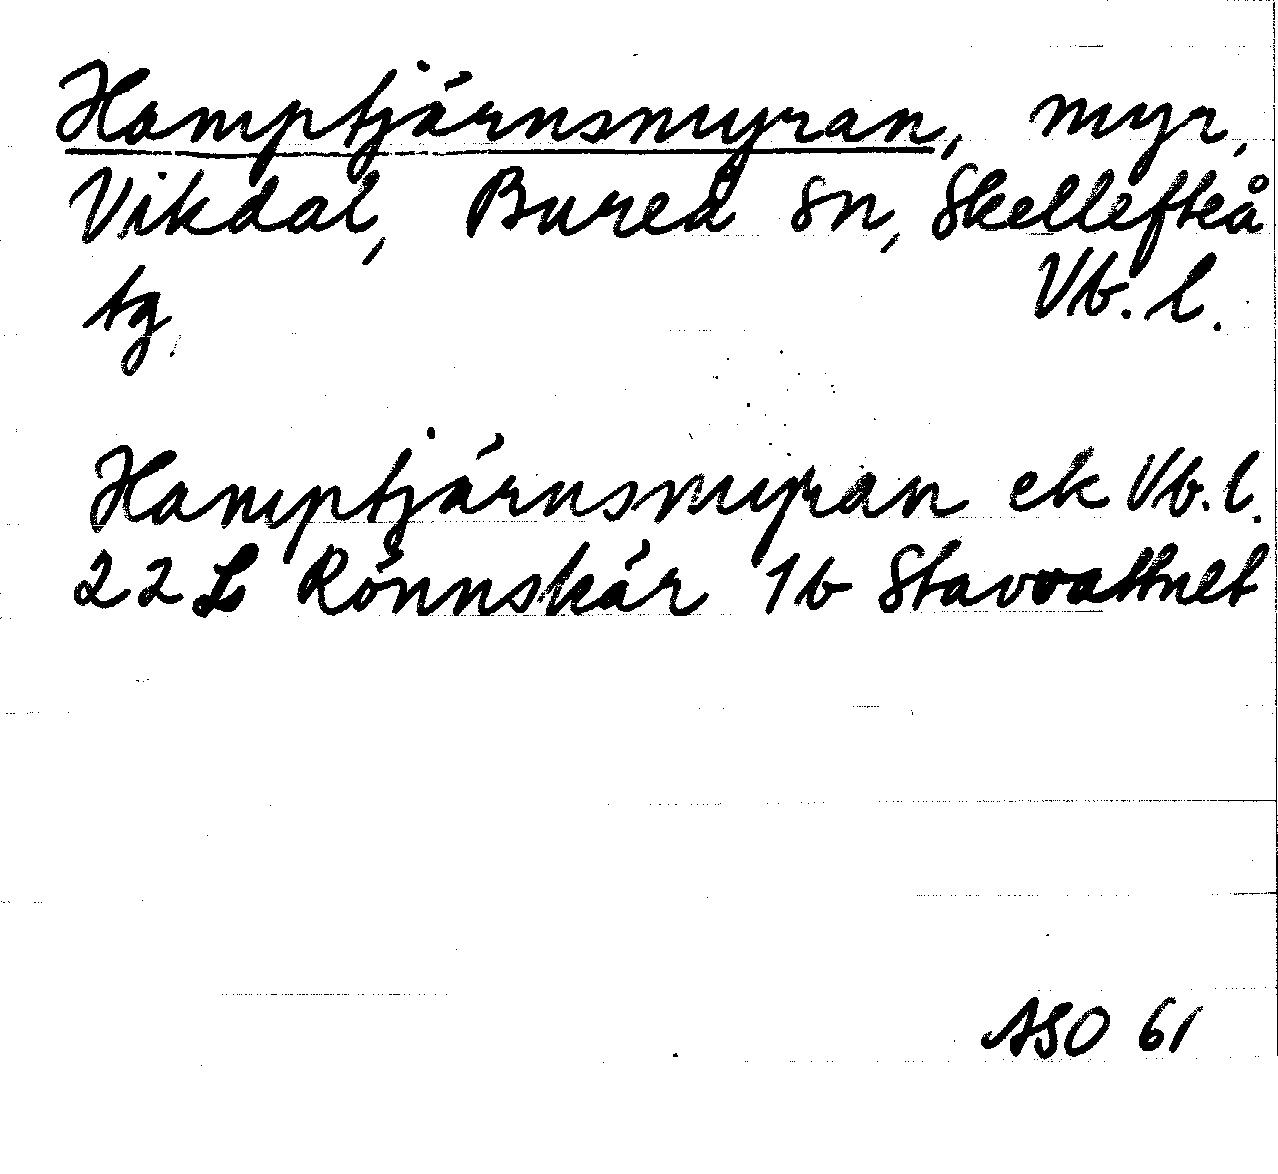 Hamptjärnsmyran, myr,
Vikdal, Bureå sn, Skellefteå
tg Vb. l.
Hamptjärnsmyran ek Vb. l.
22 L Rönnskär 1b Stavvattnet
ASO 61